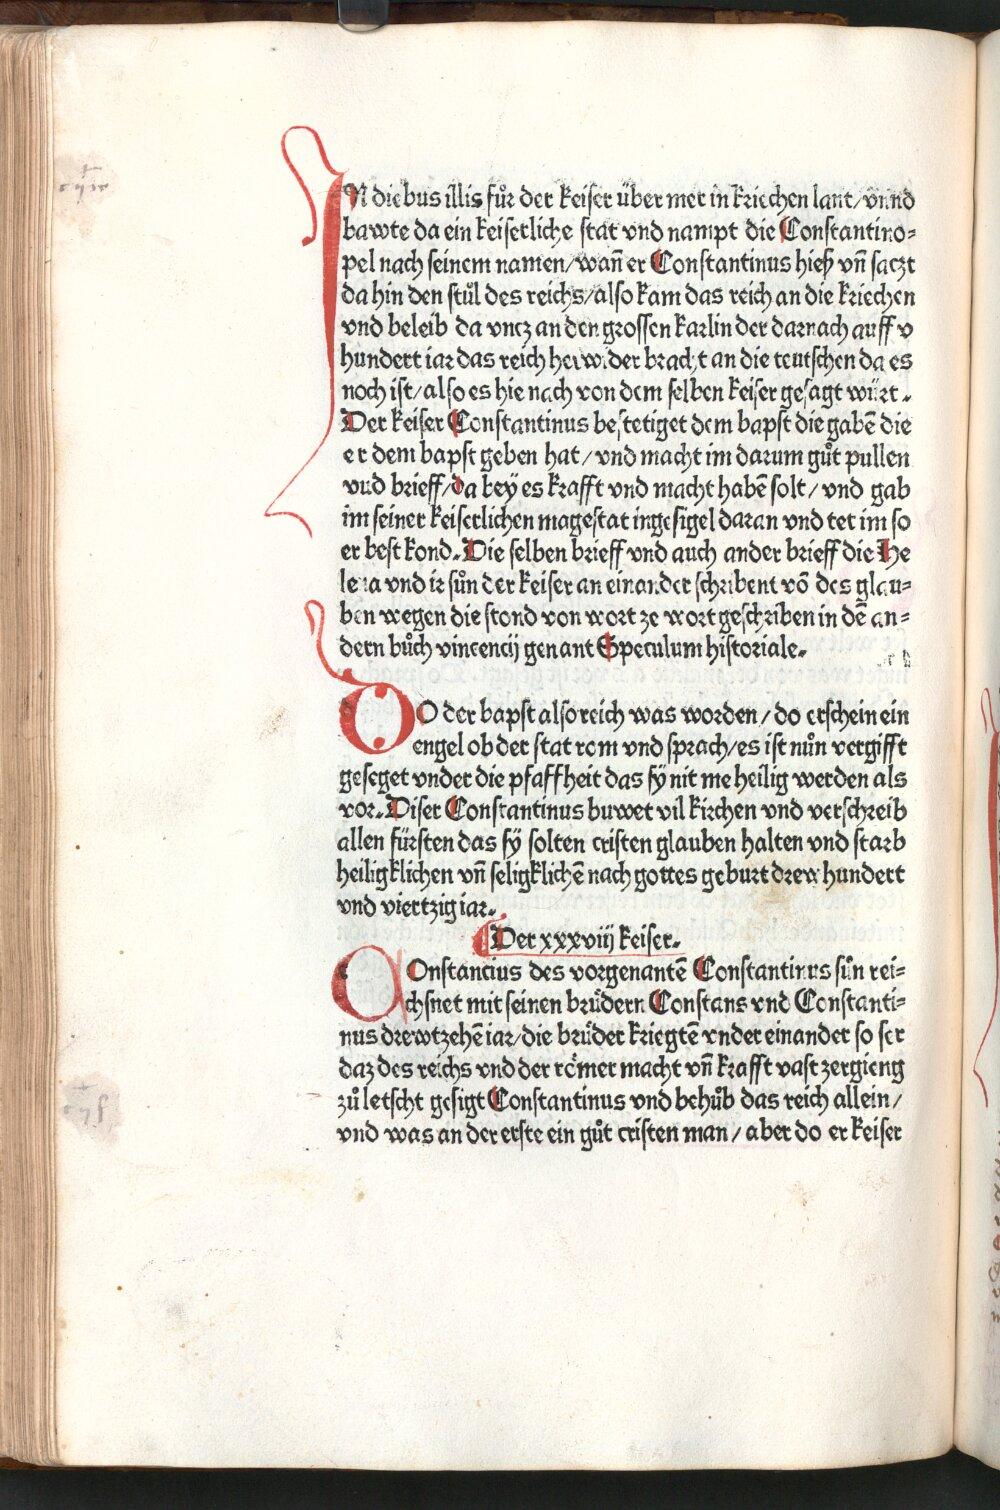 IN diebus illis fůr der keiser über mer in kriechen lant / vnnd
bawte da ein keiserliche stat vnd nampt die Constantino-
pel nach seinem namen / wañ er Constantinus hieß vñ saczt
da hin den stůl des reichs / also kam das reich an die kriechen
vnd beleib da vncz an den grossen karlin der darnach auff v
hundert iar das reich herwider bracht an die teutschen da es
noch ist / also es hie nach von dem selben keiser gesagt würt.
Der keiser Constantinus bestetiget dem bapst die gabē die
er dem bapst geben hat / vnd macht im darum gůt pullen
vnd brieff / da bey es krafft vnd macht habē solt / vnd gab
im seiner keiserlichen magestat ingesigel daran vnd tet im so
er best kond. Die selben brieff vnd auch ander brieff die He
lena vnd ir sůn der keiser an einander schribent vō des glau-
ben wegen die stond von wort ze wort geschriben in dē an-
dern bůch vincencij genant Speculum historiale.
DO der bapst also reich was worden / do erschein ein
engel ob der stat rom vnd sprach / es ist nůn vergifft
geseget vnder die pfaffheit das sÿ nit me heilig werden als
vor. Diser Constantinus buwet vil kirchen vnd verschreib
allen fürsten das sÿ solten cristen glauben halten vnd starb
heiligklichen vñ seligklichē nach gottes geburt drew hundert
vnd viertzig iar.
Der xxxviij keiser.
COnstancius des vorgenantē Constantinus sůn rei-
chsnet mit seinen brüdern Constans vnd Constanti-
nus drewtzehē iar / die brüder kriegtē vnder einander so ser
daz des reichs vnd der römer macht vñ krafft vast zergieng
zů letscht gesigt Constantinus vnd behůb das reich allein /
vnd was an der erste ein gůt cristen man / aber do er keiser